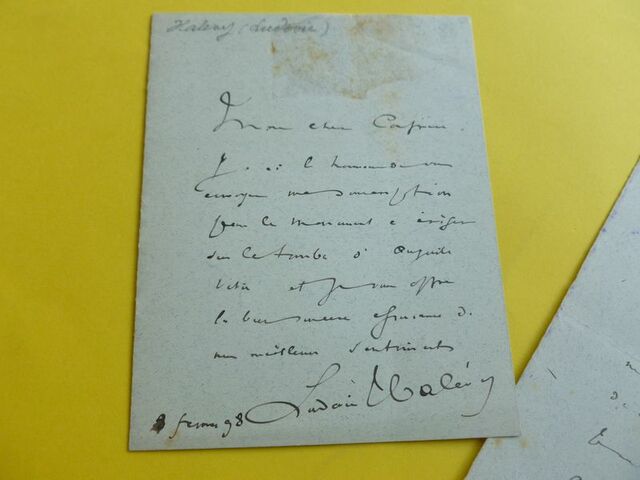 Halevy (Ludovic)
Mon cher Confrère
J'ai l'honneur de vous
envoyer ma souscription
pour le monument à ériger
sur la tombe d'Auguste
Vitu et je vous offre
la bien sincère expression de
mes meilleurs sentiments
Ludovic Halévy
8 février 98